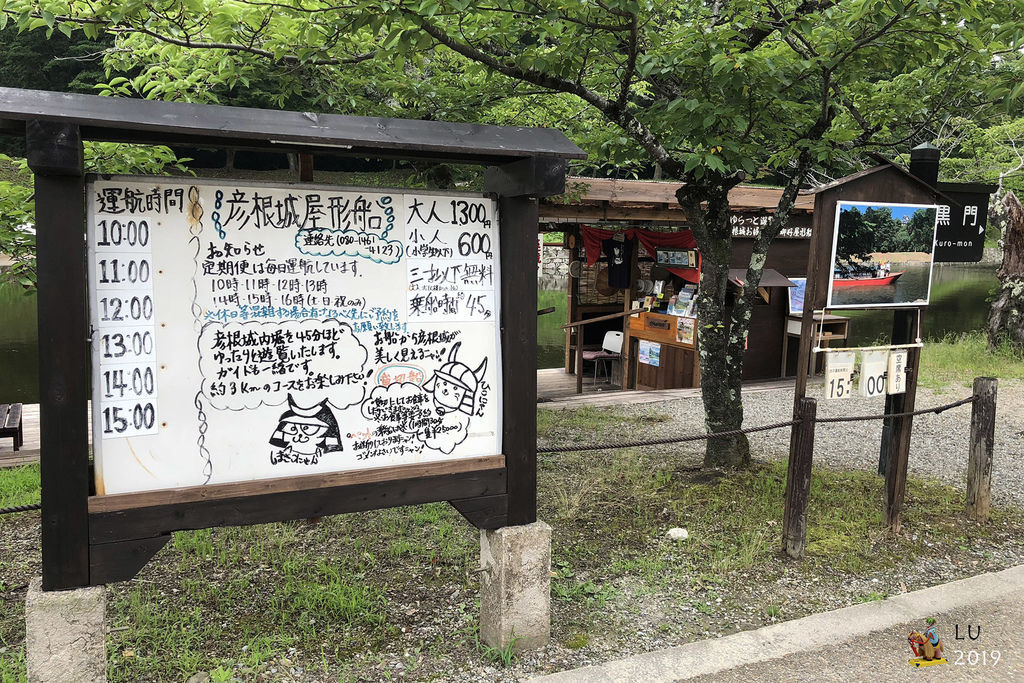 運航時間
10:00
11:00
12:00
13:00
14:00
15:00
彦根城屋形船
連絡先(080-1461
-4123)
お知らせ
定期便は毎日運航しています。
10時・11時・12時・13時
14時・15時・16時(土日祝のみ)
お願い致します
彦根城内堀を45分ほど
ゆったりと遊覧いたします。
ガイドも一緒です。
約3Kmのコースをお楽しみ下さい
大人 1300円
小人 600円
(小学生以下)
三才以下無料
乗船時間 45分
お船から彦根城が
美しく見えるニャン!
貸切船
ひこにゃん
ゴメンネよいですニャン!
ゆらっと遊覧
黒門
Kuro-mon
15:
00
空席
あり
LU
2019